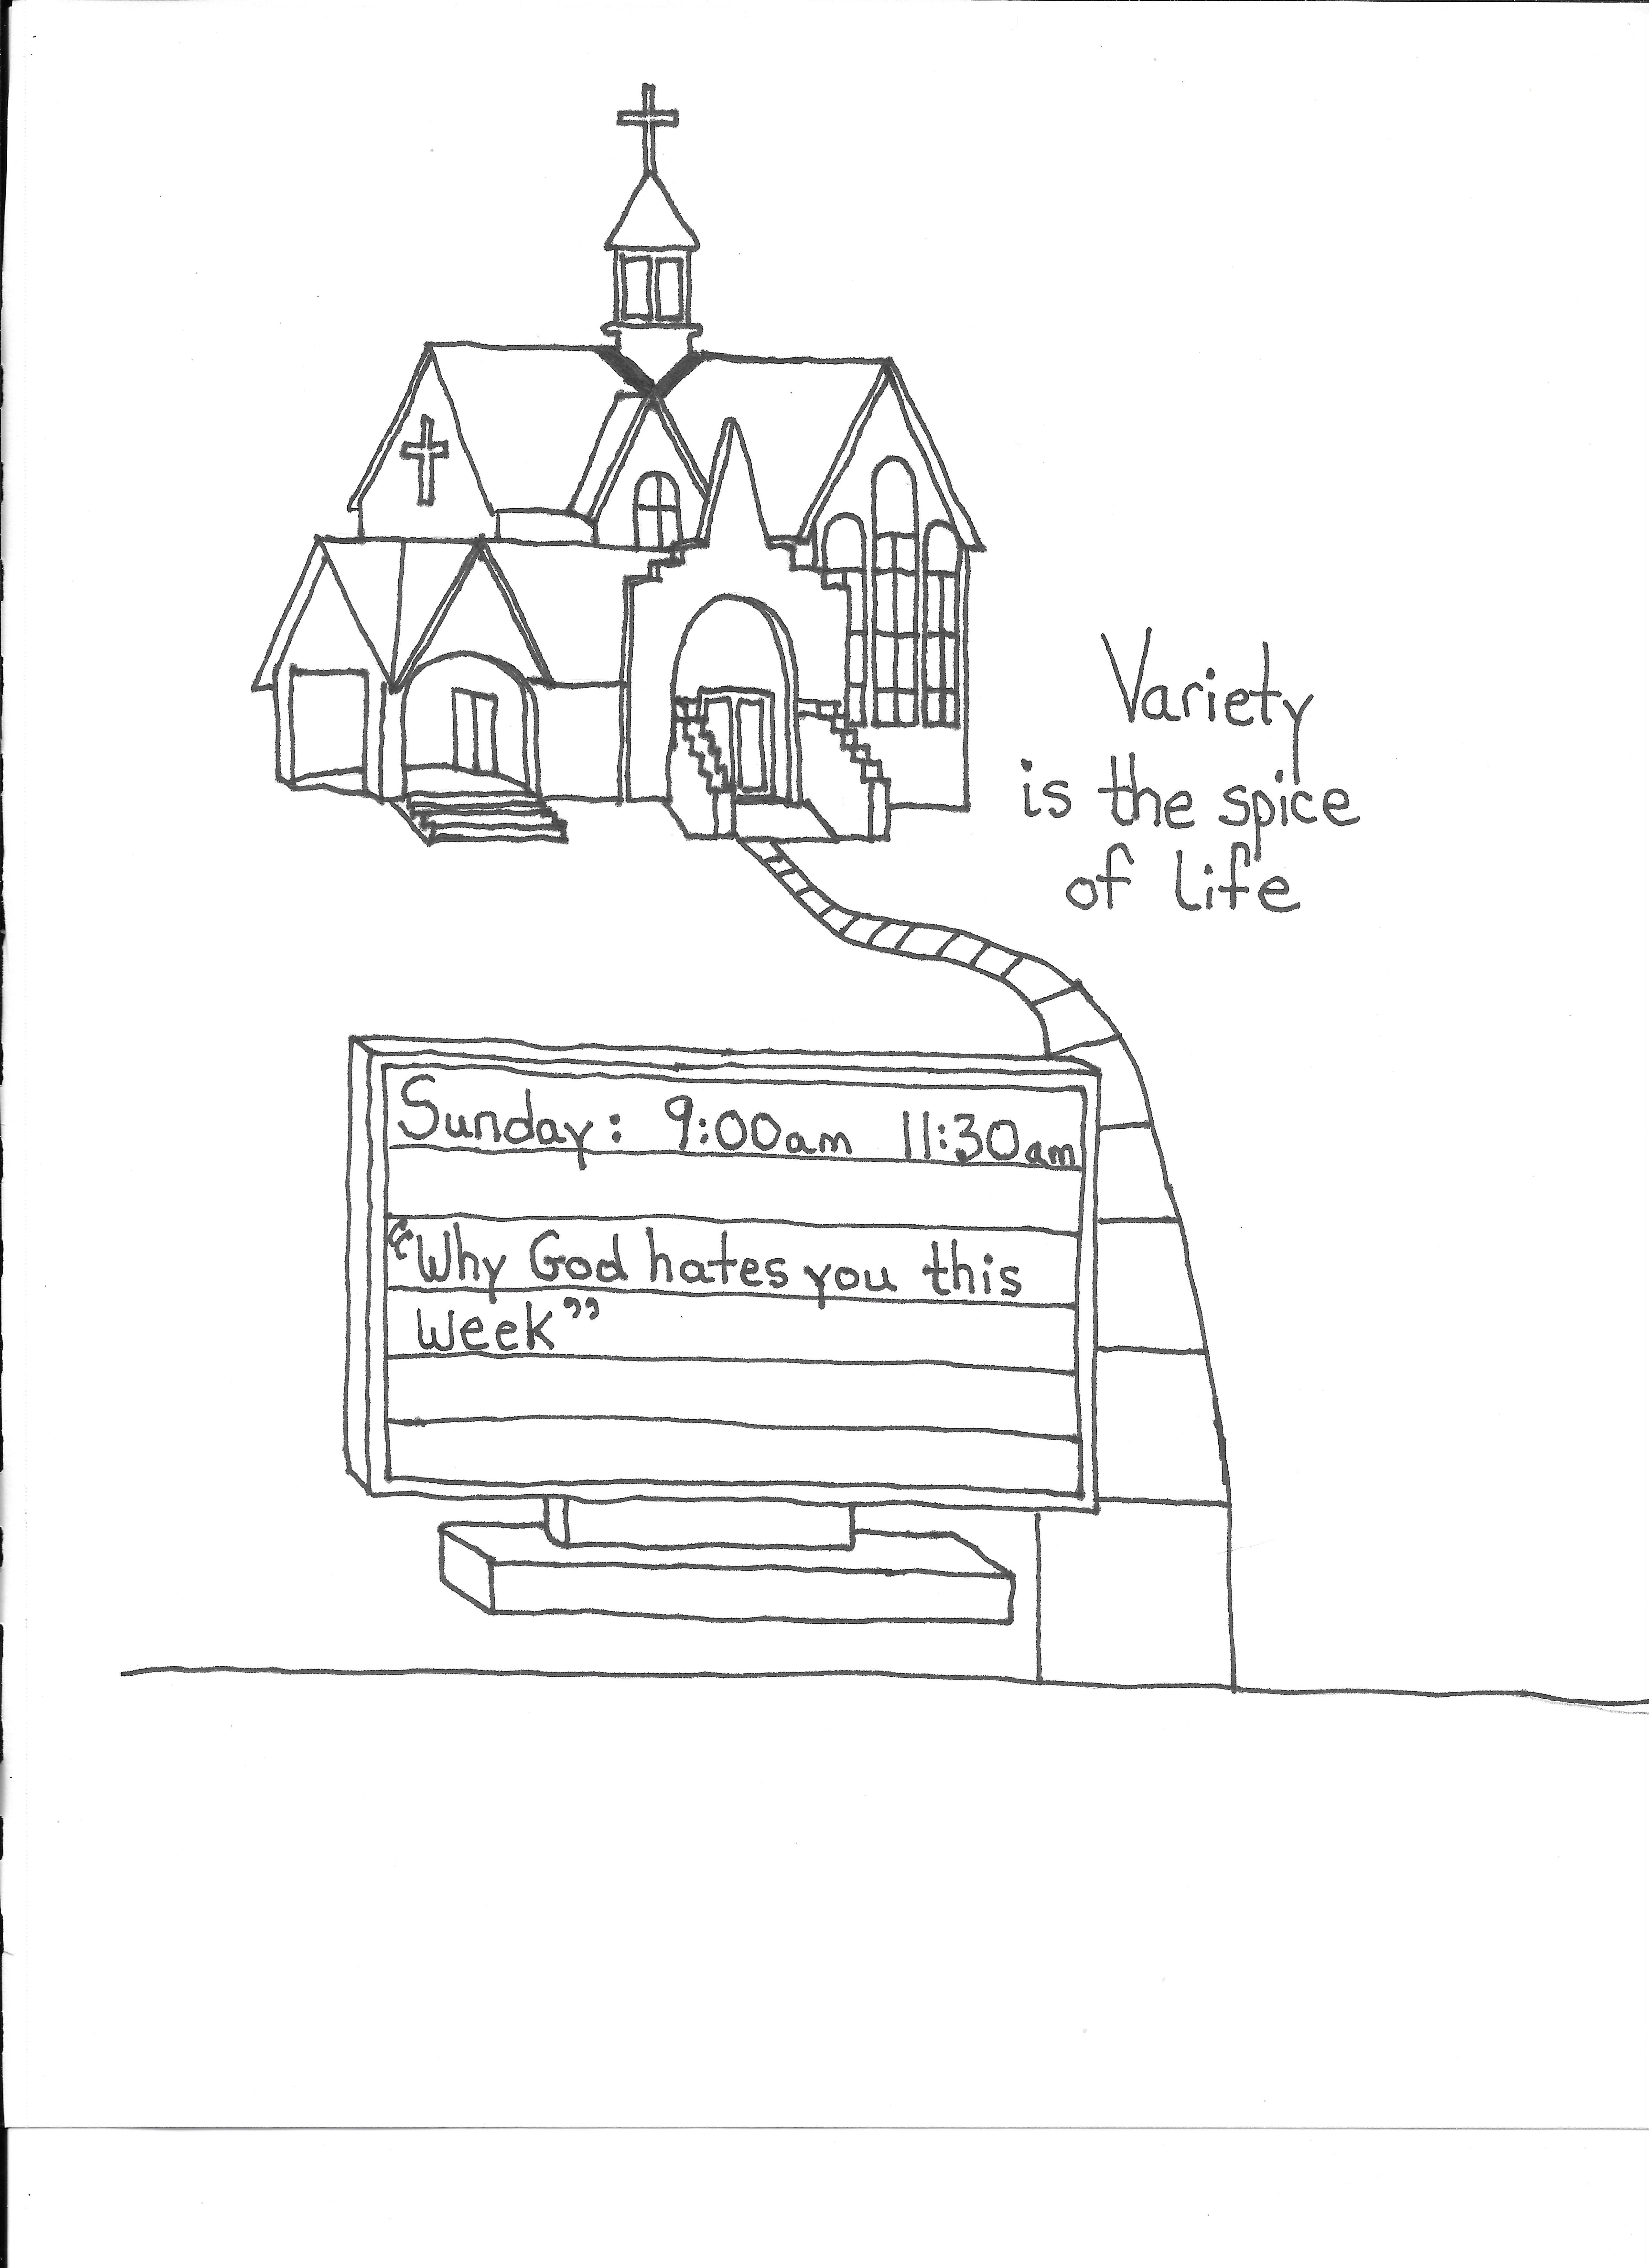 Variety
is the spice
of life
Sunday: 9:00am 11:30am
“Why God hates you this
week”